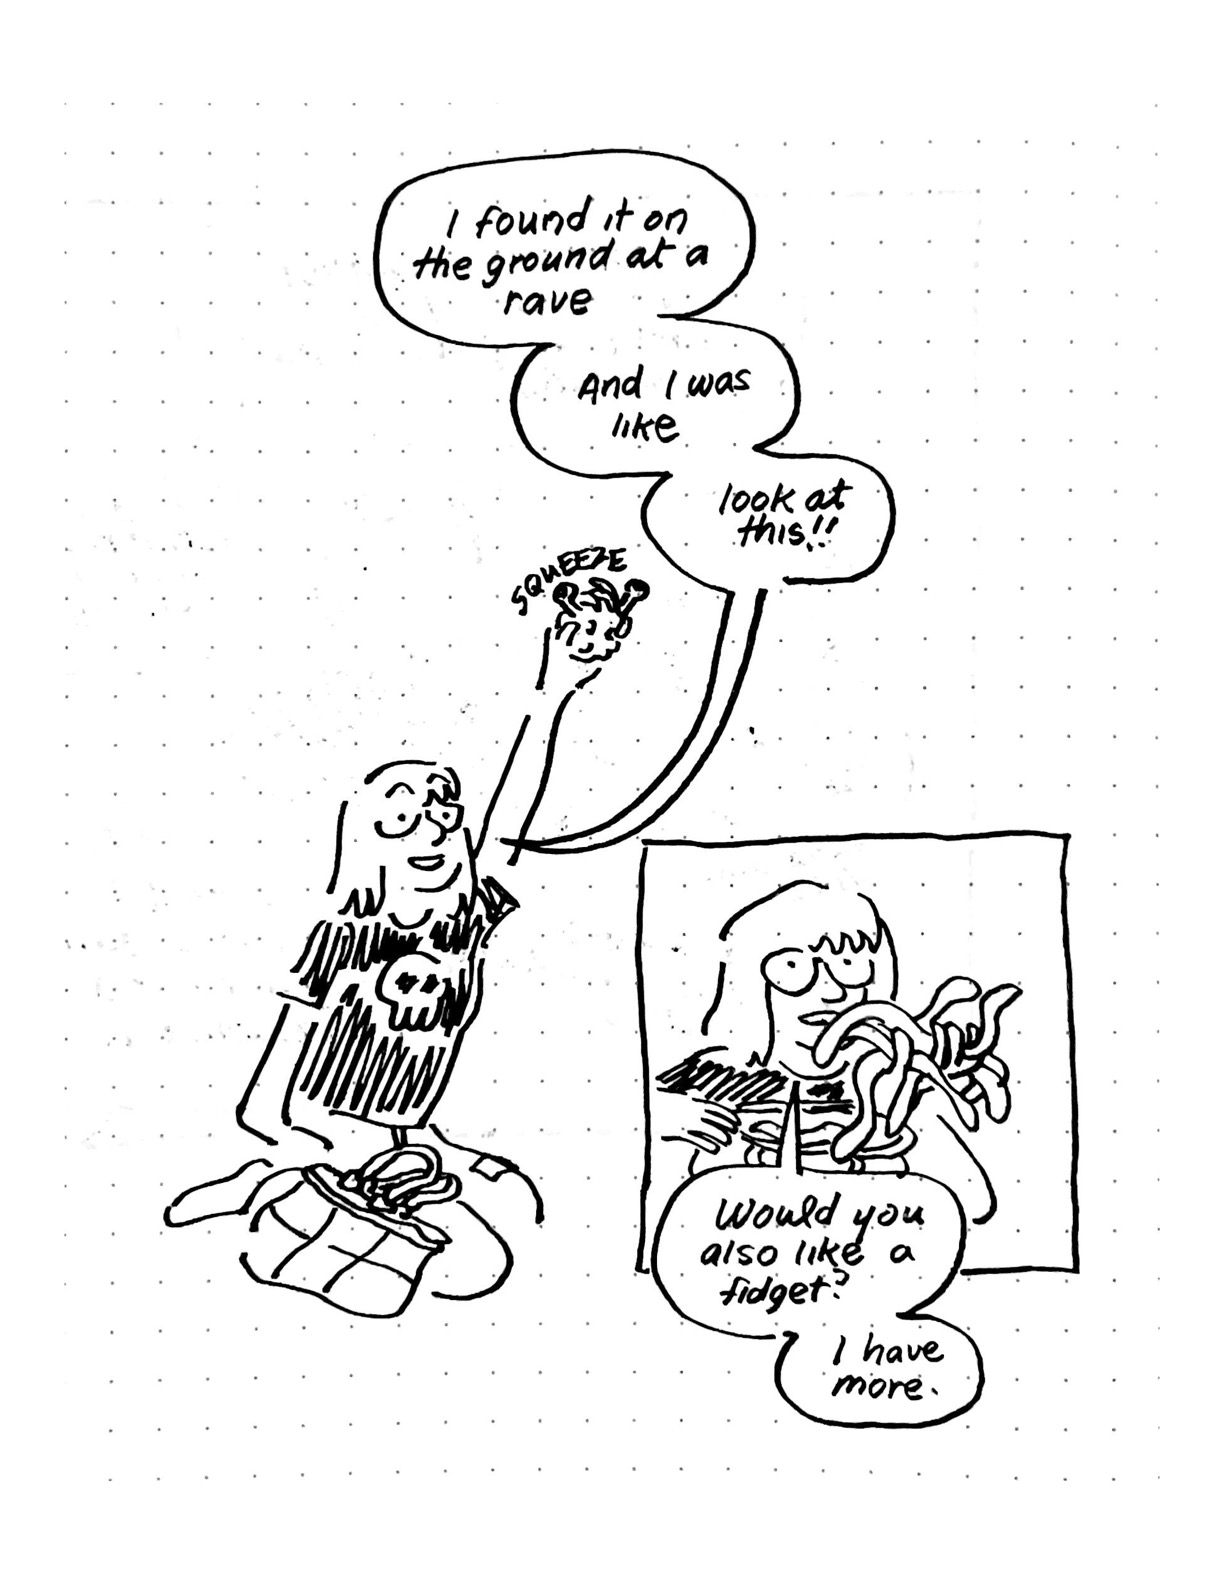 I found it on
the ground at a
rave
And I was
like
look at
this!!
SQUEEZE
Would you
also like a
fidget?
I have
more.